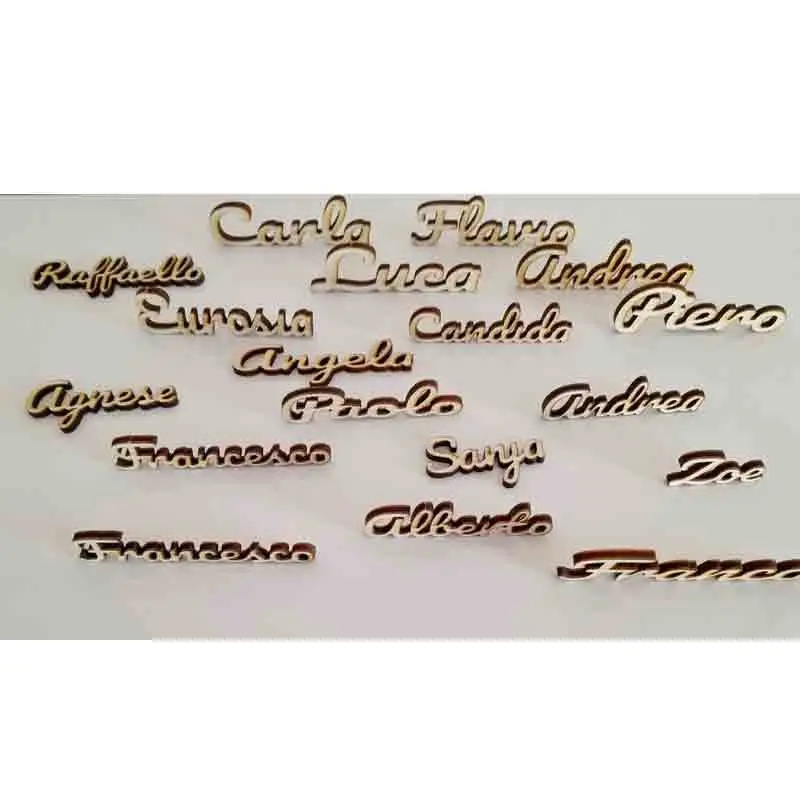 Carla Flavio
Raffaello Luca Andrea
Eurosia Candida Piero
Angela
Agnese Paolo Andrea
Francesco Sanja Zoe
Alberto
Francesco Franco